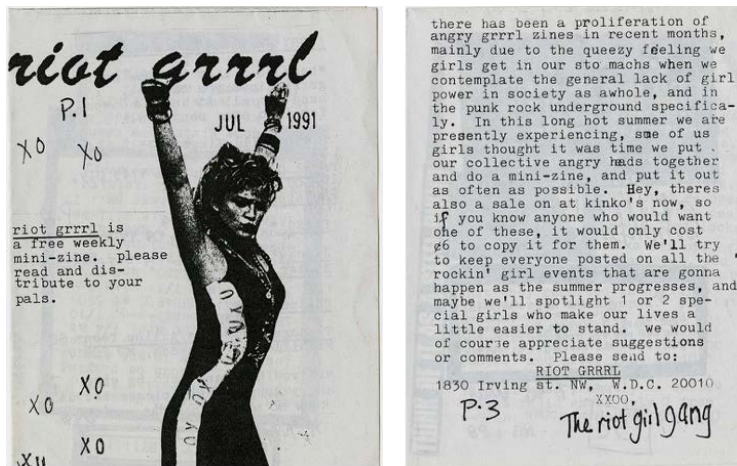 riot grrrl
P.1
JUL 1991
XO
XO
riot grrrl is
a free weekly
mini-zine. please
read and dis-
tribute to your
pals.
XO
XO
XO
there has been a proliferation of
angry grrrl zines in recent months,
mainly due to the queezy feeling we
girls get in our sto machs when we
contemplate the general lack of girl
power in society as awhole, and in
the punk rock underground specifica-
ly. In this long hot summer we are
presently experiencing, some of us
girls thought it was time we put
our collective angry heads together
and do a mini-zine, and put it out
as often as possible. Hey, theres
also a sale on at kinko's now, so
if you know anyone who would want
one of these, it would only cost
¢6 to copy it for them. We'll try
to keep everyone posted on all the
rockin' girl events that are gonna
happen as the summer progresses, and
maybe we'll spotlight 1 or 2 spe-
cial girls who make our lives a
little easier to stand. we would
of course appreciate suggestions
or comments. Please send to:
RIOT GRRRL
1830 Irving st. NW, W.D.C. 20010
XXOO,
P.3
The riot girl gang